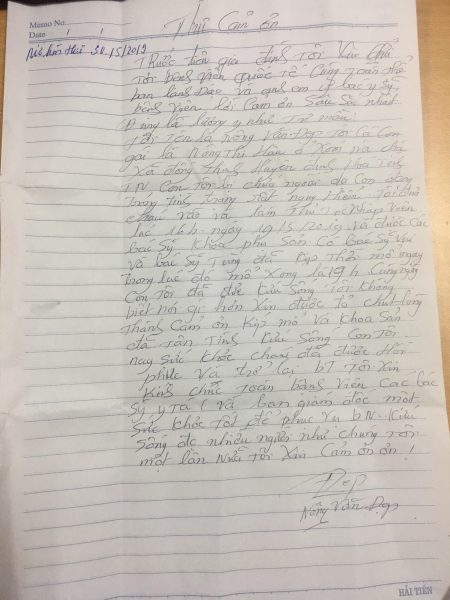 Memo No.
Date / /
Thư Cảm ơn
30/5/2019
Trước tiên gia đình tôi xin gửi
Tới bệnh viện quốc tế cùng toàn thể
ban lãnh Đạo và anh em y bác sỹ
bệnh viện lời cảm ơn sâu sắc nhất
Đúng là lương y như Từ mẫu
Tôi Tên là Nông Văn Đẹp Tôi có con
gái là Nông Thị Hân ở xóm
xã đồng Thịnh huyện định Hoá Tỉnh
TN Con Tôi bị chửa ngoài dạ con
trong tình trạng rất nguy hiểm Tôi đưa
cháu vào và làm Thủ Tục Nhập viện
lúc 16h ngày 19/5/2019 Và được các
bác sỹ khoa phụ sản có bác sỹ
và bác sỹ Tùng đã kịp Thời mổ ngay
trong lúc đó mổ xong là 19h cùng ngày
con Tôi đã được cứu sống Tôi không
biết nói gì hơn xin được tỏ chút lòng
Thành cảm ơn kíp mổ và khoa sản
đã tận Tình cứu sống con Tôi
nay sức khỏe cháu đã được Hồi
phục và trở lại bT Tôi xin
kính chúc toàn bệnh viện các bác
sỹ y Tá và ban giám đốc một
sức khỏe tốt để phục vụ bN cứu
sống đc nhiều người như chúng tôi
một lần nữa Tôi xin cảm ơn !
Đẹp
Nông Văn Đẹp
HẢI TIẾN